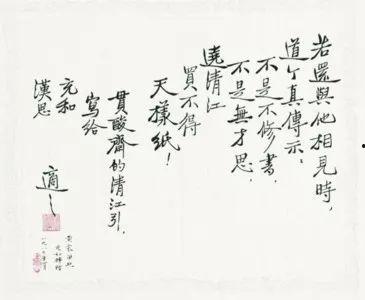 若還與他相見時，
道个真傳示：
不是不修書，
不是無才思，
遶清江
買不得
天樣紙！
貫酸齋的清江引，
寫給
充和
漢思
適之
充和轉贈